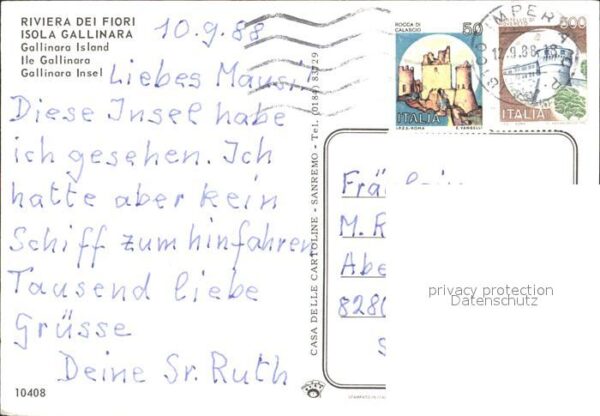 RIVIERA DEI FIORI
ISOLA GALLINARA
Gallinara Island
Ile Gallinara
Gallinara Insel
10.9.88
Liebes Mausi!
Diese Insel habe
ich gesehen. Ich
hatte aber kein
Schiff zum hinfahren
Tausend liebe
Grüsse
Deine Sr. Ruth
10408
CASA DELLE CARTOLINE - SANREMO - Tel. (0184)
ROCCA DI
CALASCIO
50
ITALIA
I.P.Z.S. ROMA E. VANGELLI
500
ITALIA
IMPERIA
12.9.88
M. R
Abe
8280
S
privacy protection
Datenschutz